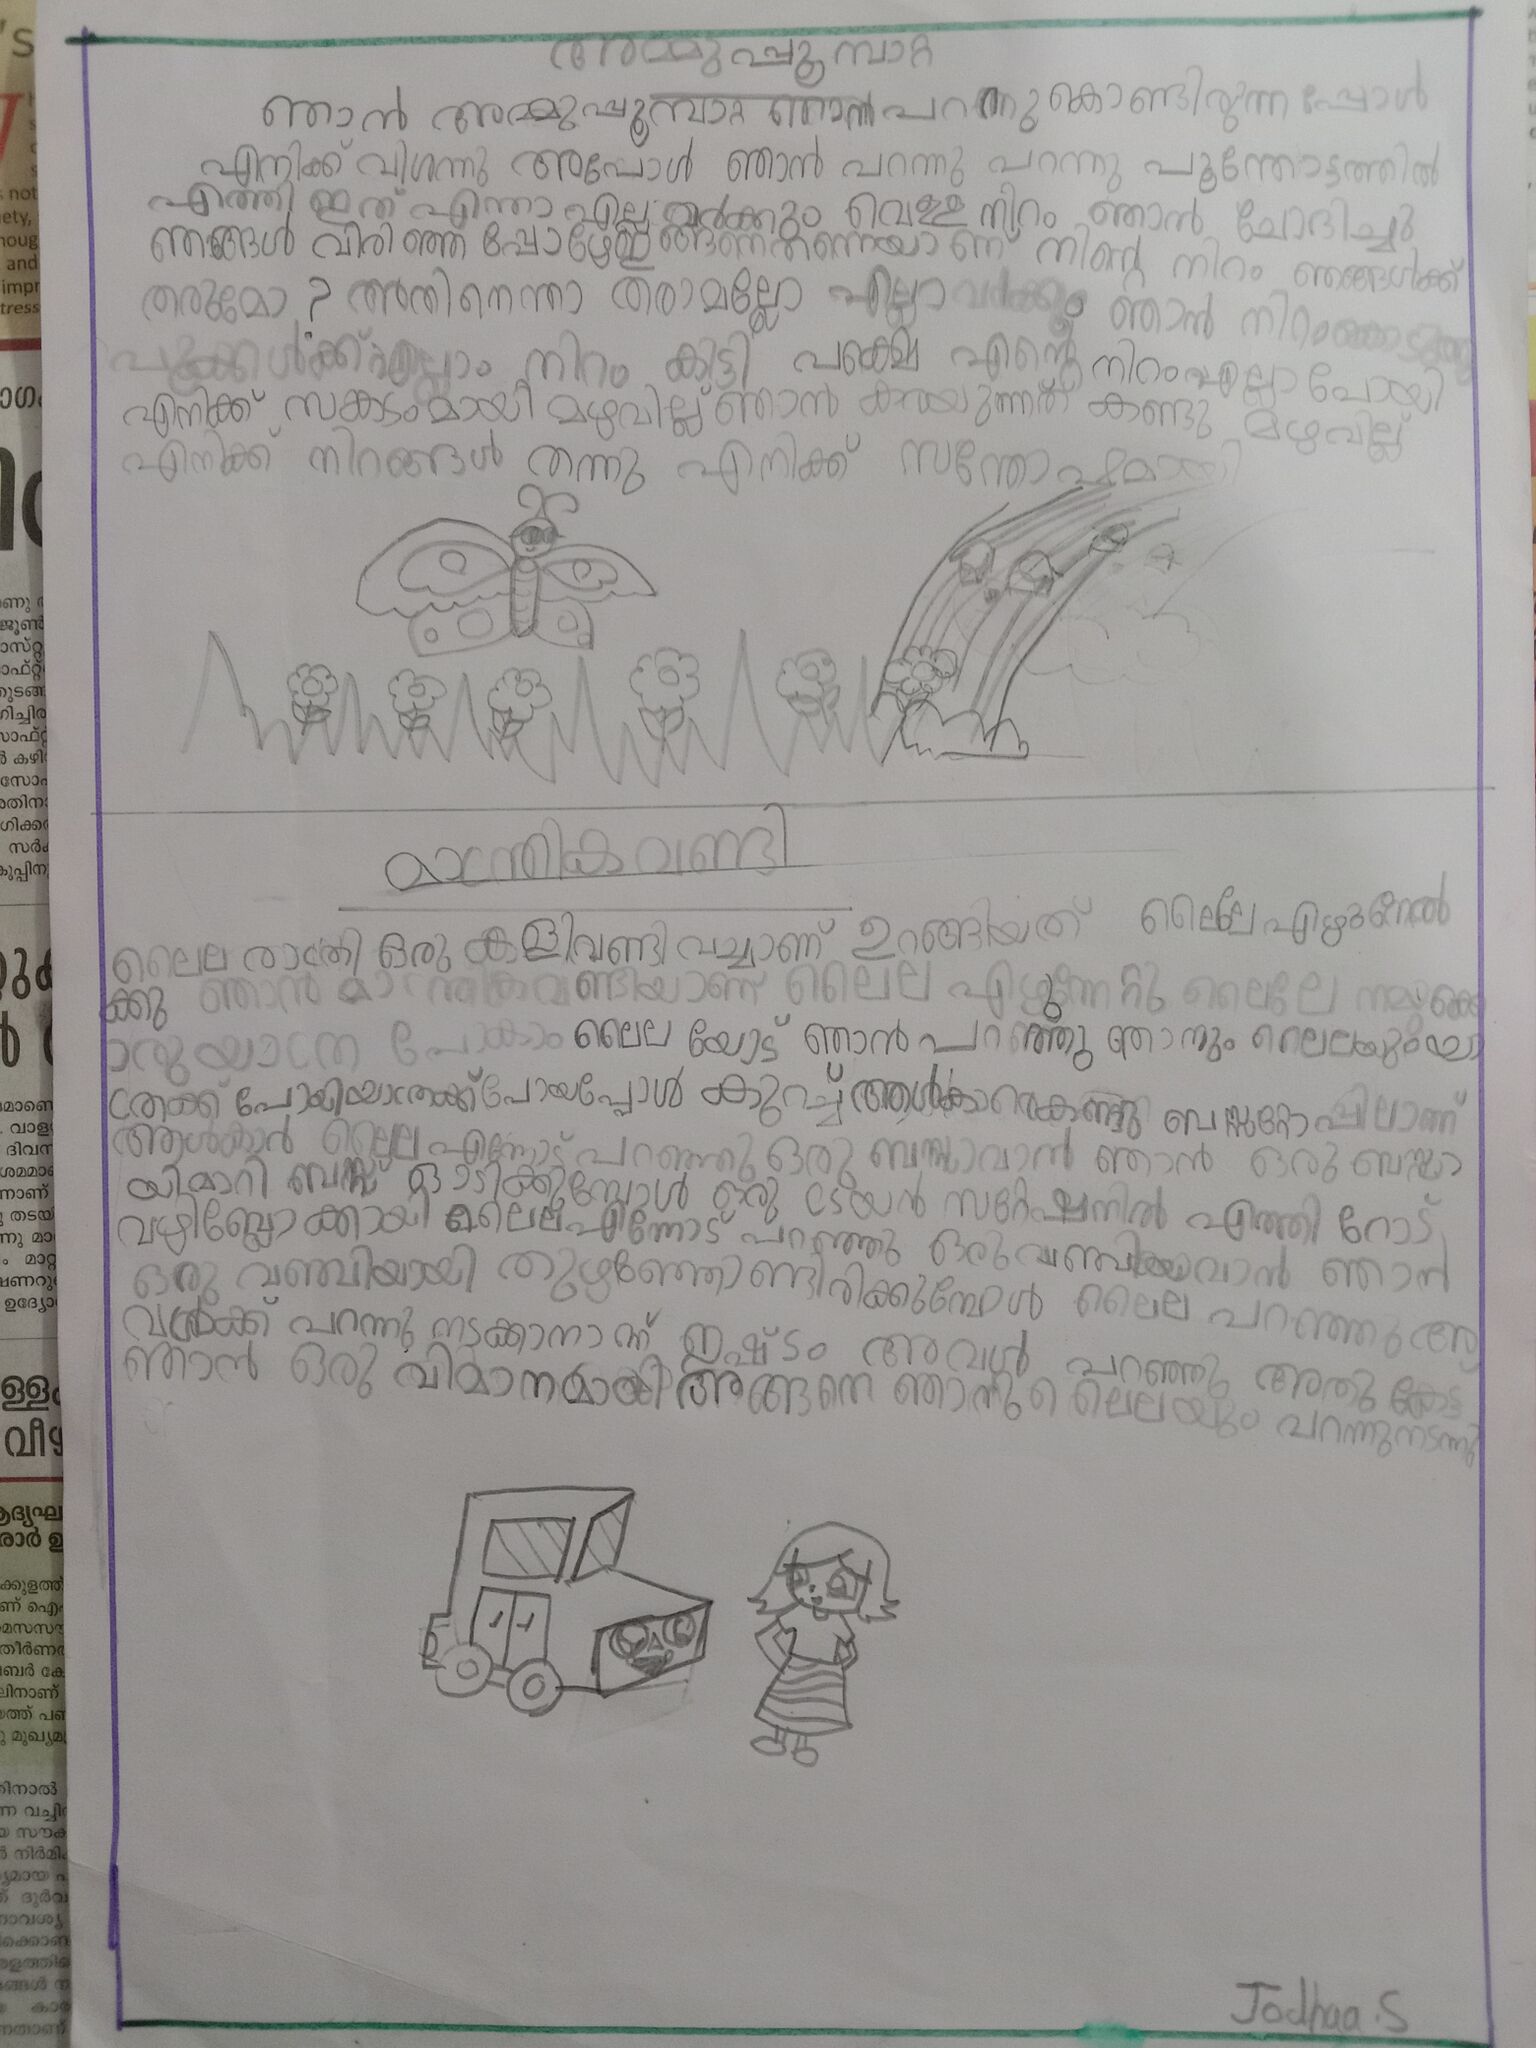 അമ്മുപ്പൂമ്പാറ്റ
ഞാൻ അമ്മുപ്പൂമ്പാറ്റ ഞാൻ പറന്നുകൊണ്ടിരുന്നപ്പോൾ
എനിക്ക് വിശന്നു അപ്പോൾ ഞാൻ പറന്നു പറന്നു പൂന്തോട്ടത്തിൽ
എത്തി ഇത് എന്താ എല്ലവർക്കും വെള്ള നിറം ഞാൻ ചോദിച്ചു
ഞങ്ങൾ വിരിഞ്ഞപ്പോഴേഇങ്ങനതന്നെയാണ് നിന്റെ നിറം ഞങ്ങൾക്ക്
തരുമോ? അതിനെന്താ തരാമല്ലോ എല്ലാവർക്കും ഞാൻ നിറംകൊടുത്തു
പൂക്കൾക്ക്എല്ലാം നിറം കിട്ടി പക്ഷെ എന്റെ നിറംഎല്ലാപോയി
എനിക്ക് സങ്കടംമായി മഴവില്ല് ഞാൻ കരയുന്നത് കണ്ടു മഴവില്ല്
എനിക്ക് നിറങ്ങൾ തന്നു എനിക്ക് സന്തോഷമായി
മാന്ത്രികവണ്ടി
ലൈല രാത്രി ഒരു കളിവണ്ടി വച്ചാണ് ഉറങ്ങിയത് ലൈലേ എഴുന്നേൽ
ക്കു ഞാൻ മാന്ത്രികവണ്ടിയാണ് ലൈല എഴുന്നേറ്റു ലൈലേ നമുക്ക്
ഒരുയാത്ര പോകാം ലൈല യോട് ഞാൻ പറഞ്ഞു ഞാനും ലൈലയുംയാ
ത്രക്ക് പോയിയാത്രക്ക്പോയപ്പോൾ കുറച്ച് ആൾക്കാരെകണ്ടു ബസ്സ്റ്റോപ്പിലാണ്
ആൾകാൻ ലൈല എന്നോട് പറഞ്ഞു ഒരു ബസ്സാവാൻ ഞാൻ ഒരു ബസ്സാ
യിമാറി ബസ്സ് ഓടിക്കുമ്പോൾ ഒരു ട്രെയൻ സറ്റേഷനിൽ എത്തി റോട്
വഴിബ്ലോക്കായി ലൈലഎന്നോട് പറഞ്ഞു ഒരു വഞ്ചിയാവാൻ ഞാൻ
ഒരു വഞ്ചിയായി തുഴഞ്ഞോണ്ടിരിക്കുമ്പോൾ ലൈല പറഞ്ഞു
പറന്നു നടക്കാനാണ് ഇഷ്ടം അവൾ പറഞ്ഞു അതു കേട്ട
ഞാൻ ഒരു വിമാനമായി അങ്ങനെ ഞാനും ലൈലയും പറന്നുനടന്നു
Jodhaa.S